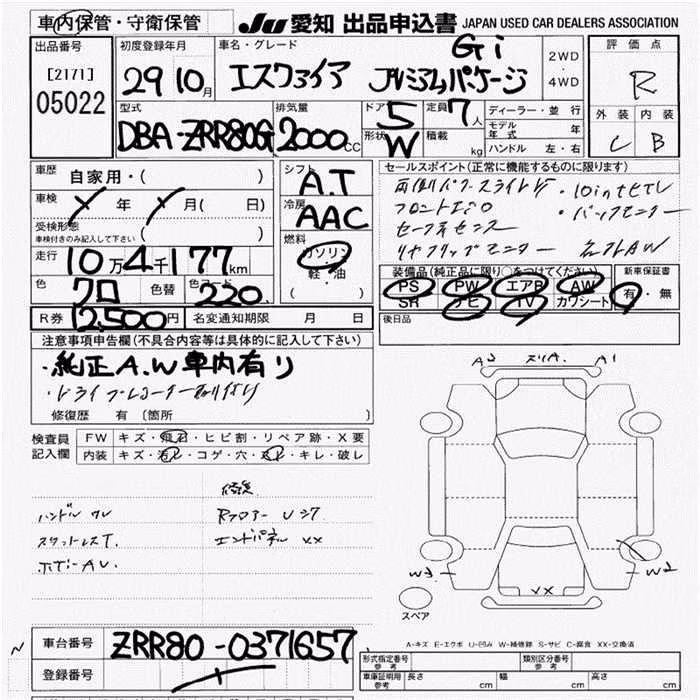 車内保管・守衛保管 JU 愛知 出品申込書 JAPAN USED CAR DEALERS ASSOCIATION
出品番号 初度登録年月 車名・グレード 評価点
[2171] 29 10月 エスクァイア Gi プレミアムパッケージ 2WD ・ 4WD R
05022
型式 排気量 ドア 定員 ディーラー・並行 外装 内装
DBA-ZRR80G 2000cc 5 7人 モデル年式 年 C B
形状 W 積載 kg ハンドル 左・右
車歴 自家用・( ) シフト A.T セールスポイント(正常に機能するものに限ります)
車検 年 月( 日) 冷房 AAC 両側パワースライド
受検形態 フロントエアロ ・バックモニター
車検付きのみ記入して下さい ( ) セーフティセンス
走行 10万4千177km 燃料 ガソリン リヤフリップモニター
軽・油
( )
色 クロ 色替 カラーコード 220 装備品(純正品に限り○をつけてください) 新車保証書
PS PW エアB AW 有・無
SR ナビ TV カワシート
R券 12,500円 名変通知期限 月 日 後日品
注意事項申告欄(不具合内容等は具体的に記入して下さい)
・純正A.W車内有り
・ドライブレコーダー取り付け
修復歴 有 〔箇所 〕
検査員記入欄 FW キズ・飛石・ヒビ割・リペア跡・X要
内装 キズ・汚レ・コゲ・穴・スレ・キレ・破レ
A1
修復
ハンドル スレ
エンドパネル XX
W3 XX W2
スペア
A-キズ E-エクボ U-凹み W-補修跡 S-サビ C-腐食 XX-交換済
車台番号 ZRR80-0371657
登録番号
形式指定番号 参考 類別区分番号 参考
車庫証明用 参考 長さ cm 幅 cm 高さ cm